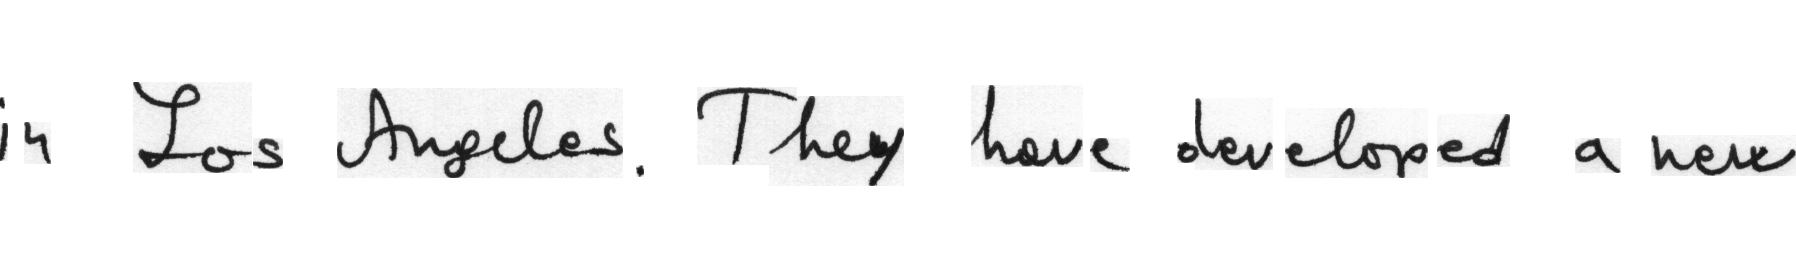 in Los Angeles. They have developed a new